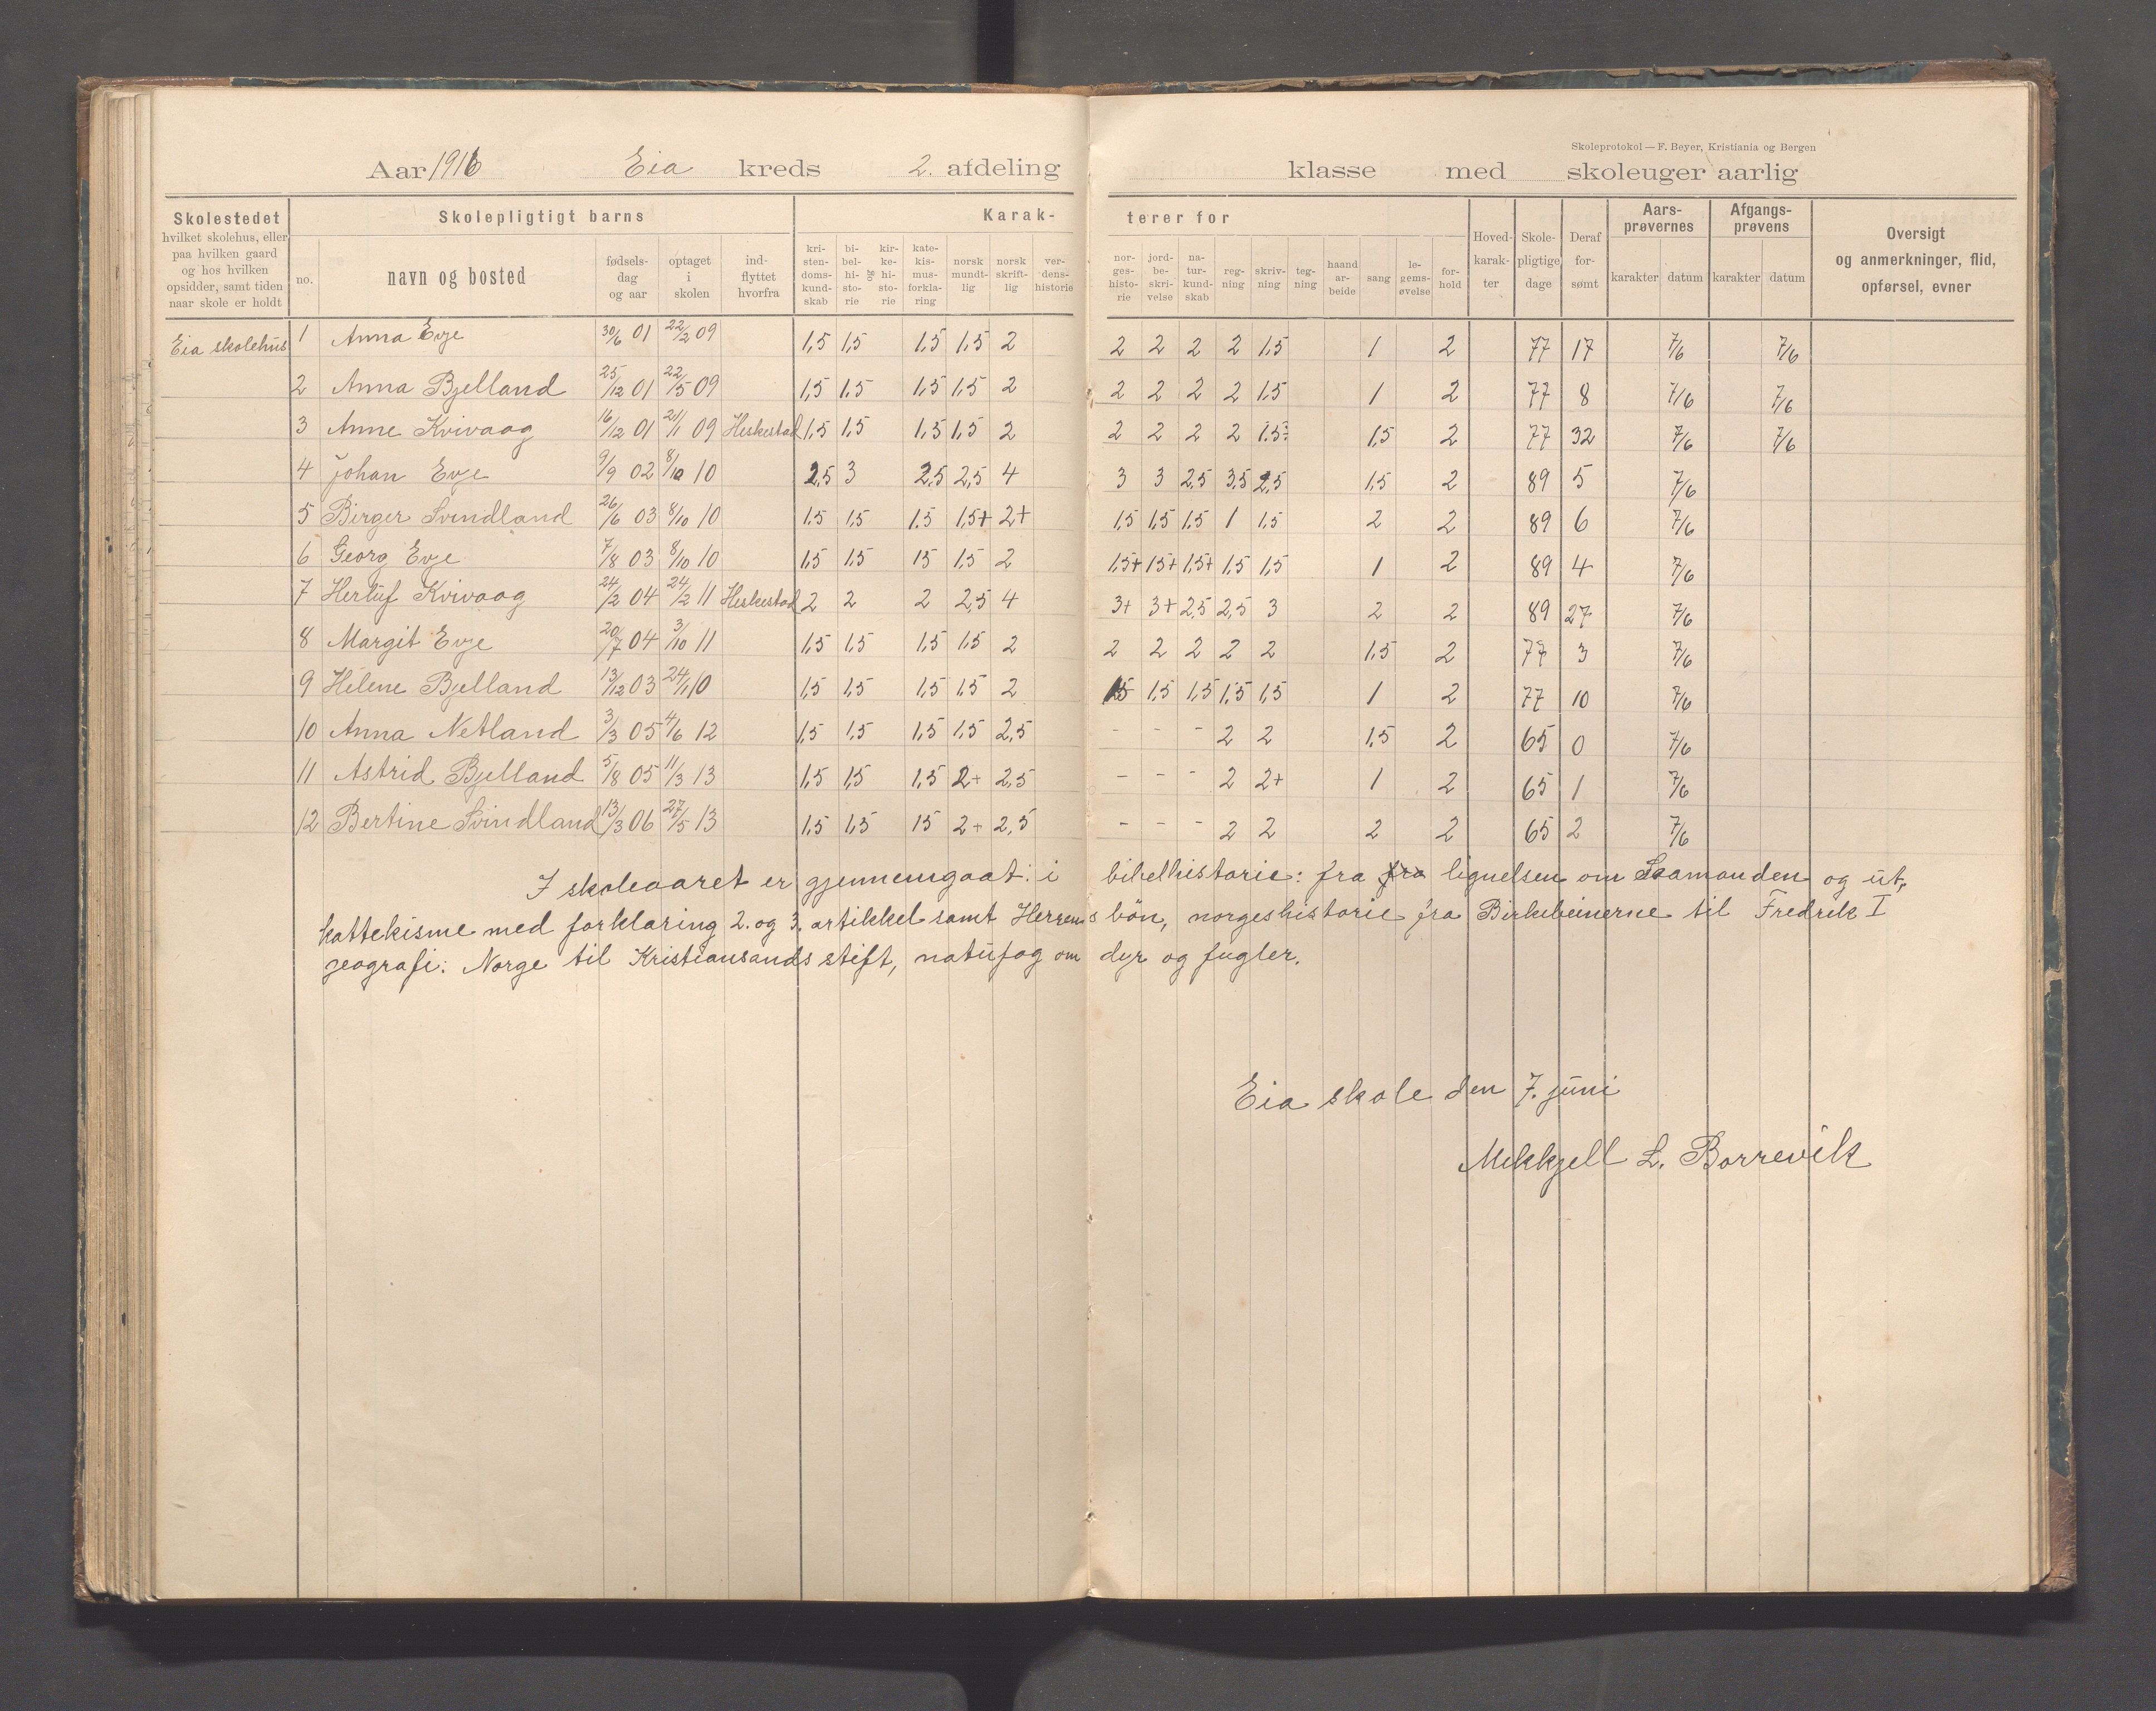 Skoleprotokol — F. Beyer, Kristiania og Bergen
Aar 1916 Eia kreds 2. afdeling klasse med skoleuger aarlig
Skolestedet hvilket skolehus, eller paa hvilken gaard og hos hvilken opsidder, samt tiden naar skole er holdt
Skolepligtigt barns
no. navn og bosted fødselsdag og aar optaget i skolen indflyttet hvorfra
Karakterer for
kristendomskundskab bibelhistorie og kirkehistorie katekismusforklaring norsk mundtlig norsk skriftlig verdenshistorie norgeshistorie jordbeskrivelse naturkundskab regning skrivning tegning haandarbeide sang legemsøvelse forhold
Hovedkarakter Skolepligtige dage Deraf forsømt Aarsprøvernes karakter datum Afgangsprøvens karakter datum Oversigt og anmerkninger, flid, opførsel, evner
Eia skolehus 1 Anna Evje 30/6 01 22/2 09 1,5 1,5 1,5 1,5 2 2 2 2 2 1,5 1 2 77 17 7/6 7/6
2 Anna Bjelland 25/12 01 22/5 09 1,5 1,5 1,5 1,5 2 2 2 2 2 1,5 1 2 77 8 7/6 7/6
3 Anne Kvivaag 16/12 01 21/1 09 Heskestad 1,5 1,5 1,5 1,5 2 2 2 2 2 1,5 1,5 2 77 32 7/6 7/6
4 Johan Evje 9/9 02 8/10 10 2,5 3 2,5 2,5 4 3 3 2,5 3,5 2,5 1,5 2 89 5 7/6
5 Birger Svindland 26/6 03 8/10 10 1,5 1,5 1,5 1,5+ 2+ 1,5 1,5 1,5 1 1,5 2 2 89 6 7/6
6 Georg Evje 7/8 03 8/10 10 1,5 1,5 15 1,5 2 1,5+ 15+ 1,5+ 1,5 1,5 1 2 89 4 7/6
7 Herluf Kvivaag 24/2 04 24/2 11 Heskestad 2 2 2 2,5 4 3+ 3+ 2,5 2,5 3 2 2 89 27 7/6
8 Margit Evje 20/7 04 3/10 11 1,5 1,5 1,5 1,5 2 2 2 2 2 2 1,5 2 77 3 7/6
9 Helene Bjelland 13/12 03 24/1 10 1,5 1,5 1,5 1,5 2 1,5 1,5 1,5 1,5 1,5 1 2 77 10 7/6
10 Anna Netland 3/3 05 4/6 12 1,5 1,5 1,5 1,5 2,5 - - - 2 2 1,5 2 65 0 7/6
11 Astrid Bjelland 5/8 05 11/3 13 1,5 1,5 1,5 2+ 2,5 - - - 2 2+ 1 2 65 1 7/6
12 Bertine Svindland 13/3 06 27/5 13 1,5 1,5 15 2+ 2,5 - - - 2 2 2 2 65 2 7/6
I skoleaaret er gjennemgaat: i bibelhistorie: fra fra lignelsen om Saamanden og ut,
kattekisme med forklaring 2. og 3. artikkel samt Herrens bön, norgeshistorie fra Birkebeinerne til Fredrik I
geografi: Norge til Kristiansands stift, natufag om dyr og fugler.
Eia skole den 7. juni
Mekkjell L. Borrevik